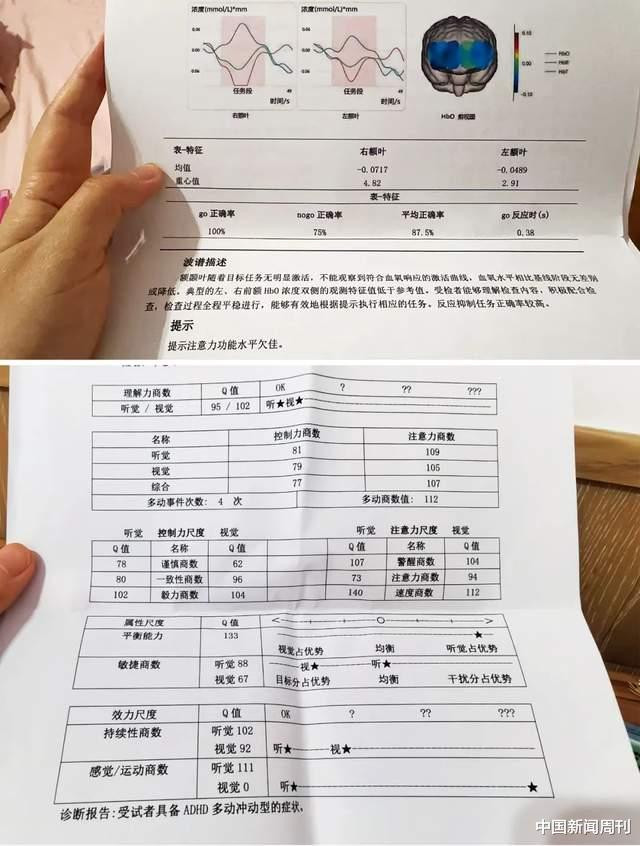 浓度(mmol/L)*mm
浓度(mmol/L)*mm
0.06
0.00
0.06
任务段
49
时间/s
右额叶
0.06
0.00
0.06
任务段
49
时间/s
左额叶
HbO 前视图
0.10
0.00
-0.10
HbO
HbR
HbT
表-特征 右额叶 左额叶
均值 -0.0717 -0.0489
重心值 4.82 2.91
表-特征
go 正确率 nogo 正确率 平均正确率 go 反应时(s)
100% 75% 87.5% 0.38
波谱描述
额颞叶随着目标任务无明显激活，不能观察到符合血氧响应的激活曲线，血氧水平相比基线阶段无差别
或降低。典型的左、右前额 HbO 浓度双侧的观测特征值低于参考值。受检者能够理解检查内容，积极配合检
查，检查过程全程平稳进行，能够有效地根据提示执行相应的任务。反应抑制任务正确率较高。
提示
提示注意力功能水平欠佳。
理解力商数 Q 值 OK ? ?? ???
听觉 / 视觉 95 / 102 听★视★
名称 控制力商数 注意力商数
听觉 81 109
视觉 79 105
综合 77 107
多动事件次数: 4 次 多动商数值: 112
听觉 控制力尺度 视觉 听觉 注意力尺度 视觉
Q 值 名称 Q 值 Q 值 名称 Q 值
78 谨慎商数 62 107 警醒商数 104
80 一致性商数 96 73 注意力商数 94
102 毅力商数 104 140 速度商数 112
属性尺度 Q 值
平衡能力 133 ★
视觉占优势 均衡 听觉占优势
敏捷商数 听觉 88 视★ 听★
视觉 67 目标分占优势 均衡 干扰分占优势
效力尺度 Q 值 OK ? ?? ???
持续性商数 听觉 102
视觉 92 听★ 视★
感觉/运动商数 听觉 111
视觉 0 听★ ★
诊断报告:受试者具备 ADHD 多动冲动型的症状,
中国新闻周刊